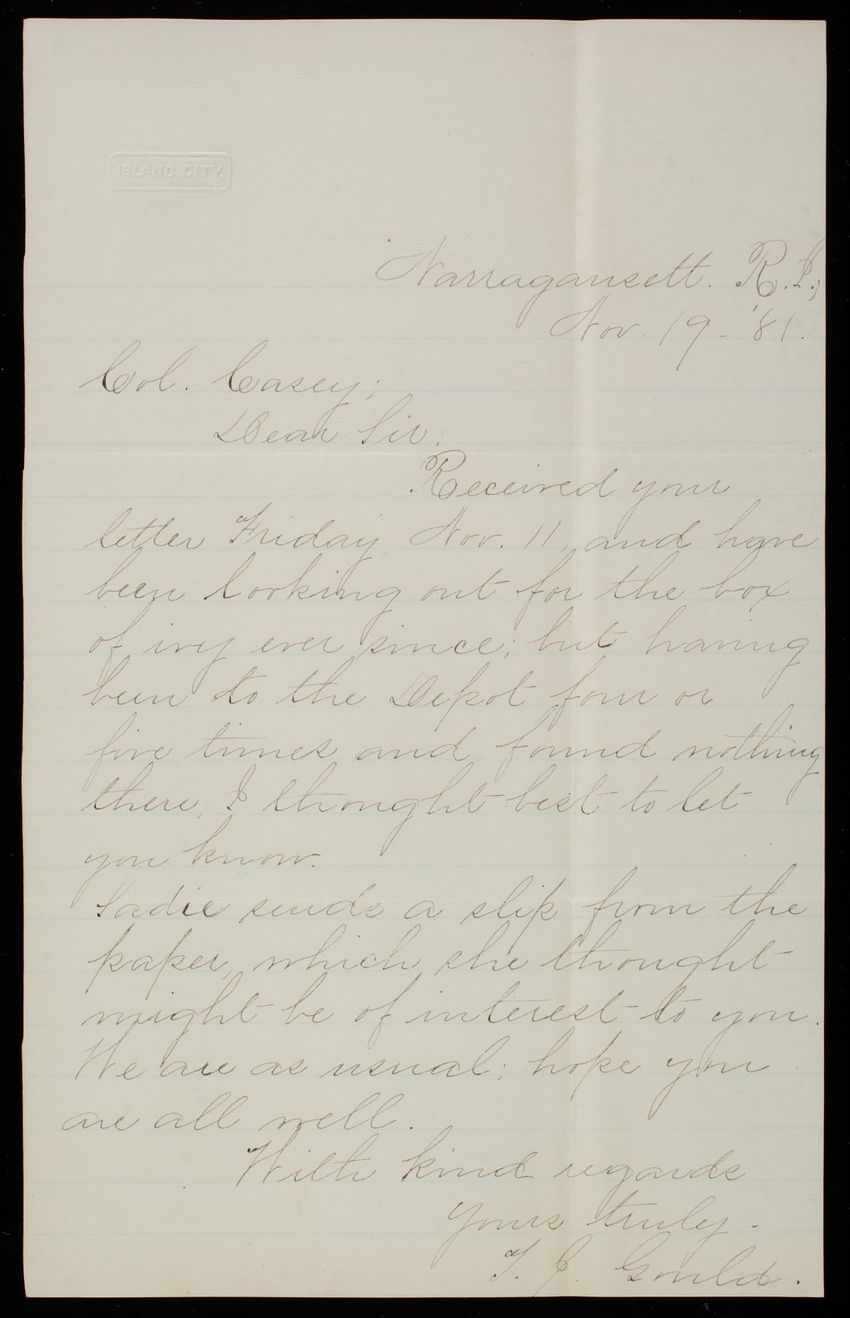 ISLAND CITY
Narragansett. R.I.;
Nov. 19 - '81.
Col. Casey;
Dear Sir:
Received your
letter Friday, Nov. 11, and have
been looking out for the box
of ivy ever since; but having
been to the Depot four or
five times and found nothing
there, I thought best to let
you know.
Sadie sends a slip from the
paper, which she thought
might be of interest to you.
We are as usual; hope you
are all well.
With kind regards
Yours truly -
T. J. Gould.